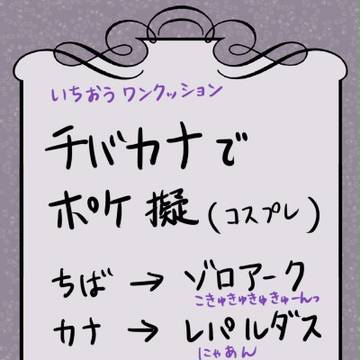 いちおうワンクッション
チバカナで
ポケ擬(コスプレ)
ちば→ゾロアーク
こきゅきゅきゅきゅーんっ
カナ→レパルダス
にゃあん